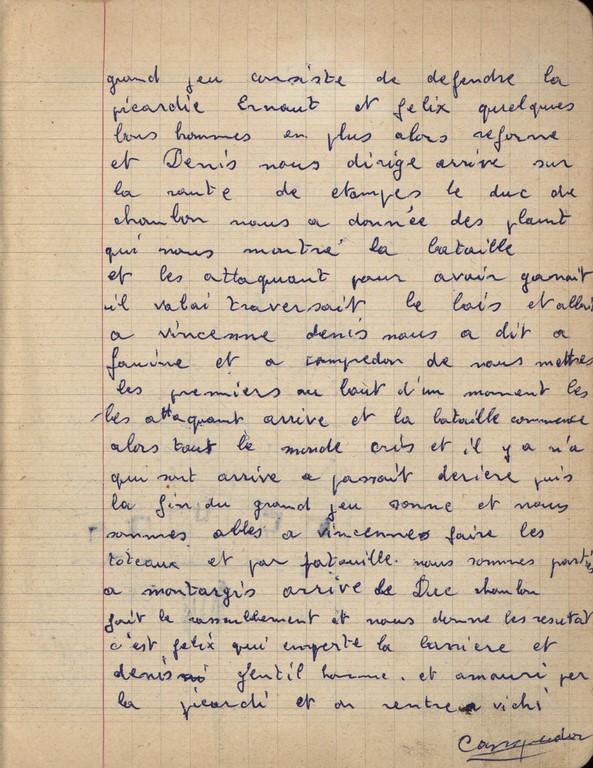 grand jeu consiste de defendre la
picardie Ernaut et felix quelques
bons hommes en plus alors reforme
et Denis nous dirige arrive sur
la route de etampes le duc de
chambon nous a donnée des plant
qui nous montré la bataille
et les attaquant pour avoir ganait
il valai traversait le bois et allait
a vincenne denis nous a dit a
fouine et a campedon de nous mettres
les premiers au bout d'un moment les
les attaquant arrive et la bataille commence
alors tout le monde cris et il y a n'a
qui sont arrive a passait deriere puis
la fin du grand jeu sonne et nous
sommes alles a vincennes faire les
toteaux et par patouille. nous sommes partis
a montargis arrive le Duc chambon
fait le rassemblement et nous donne les resultat
c'est felix qui emporte la baniere et
denis gentil homme. et amauri per
la picardi et on rentre a vichi